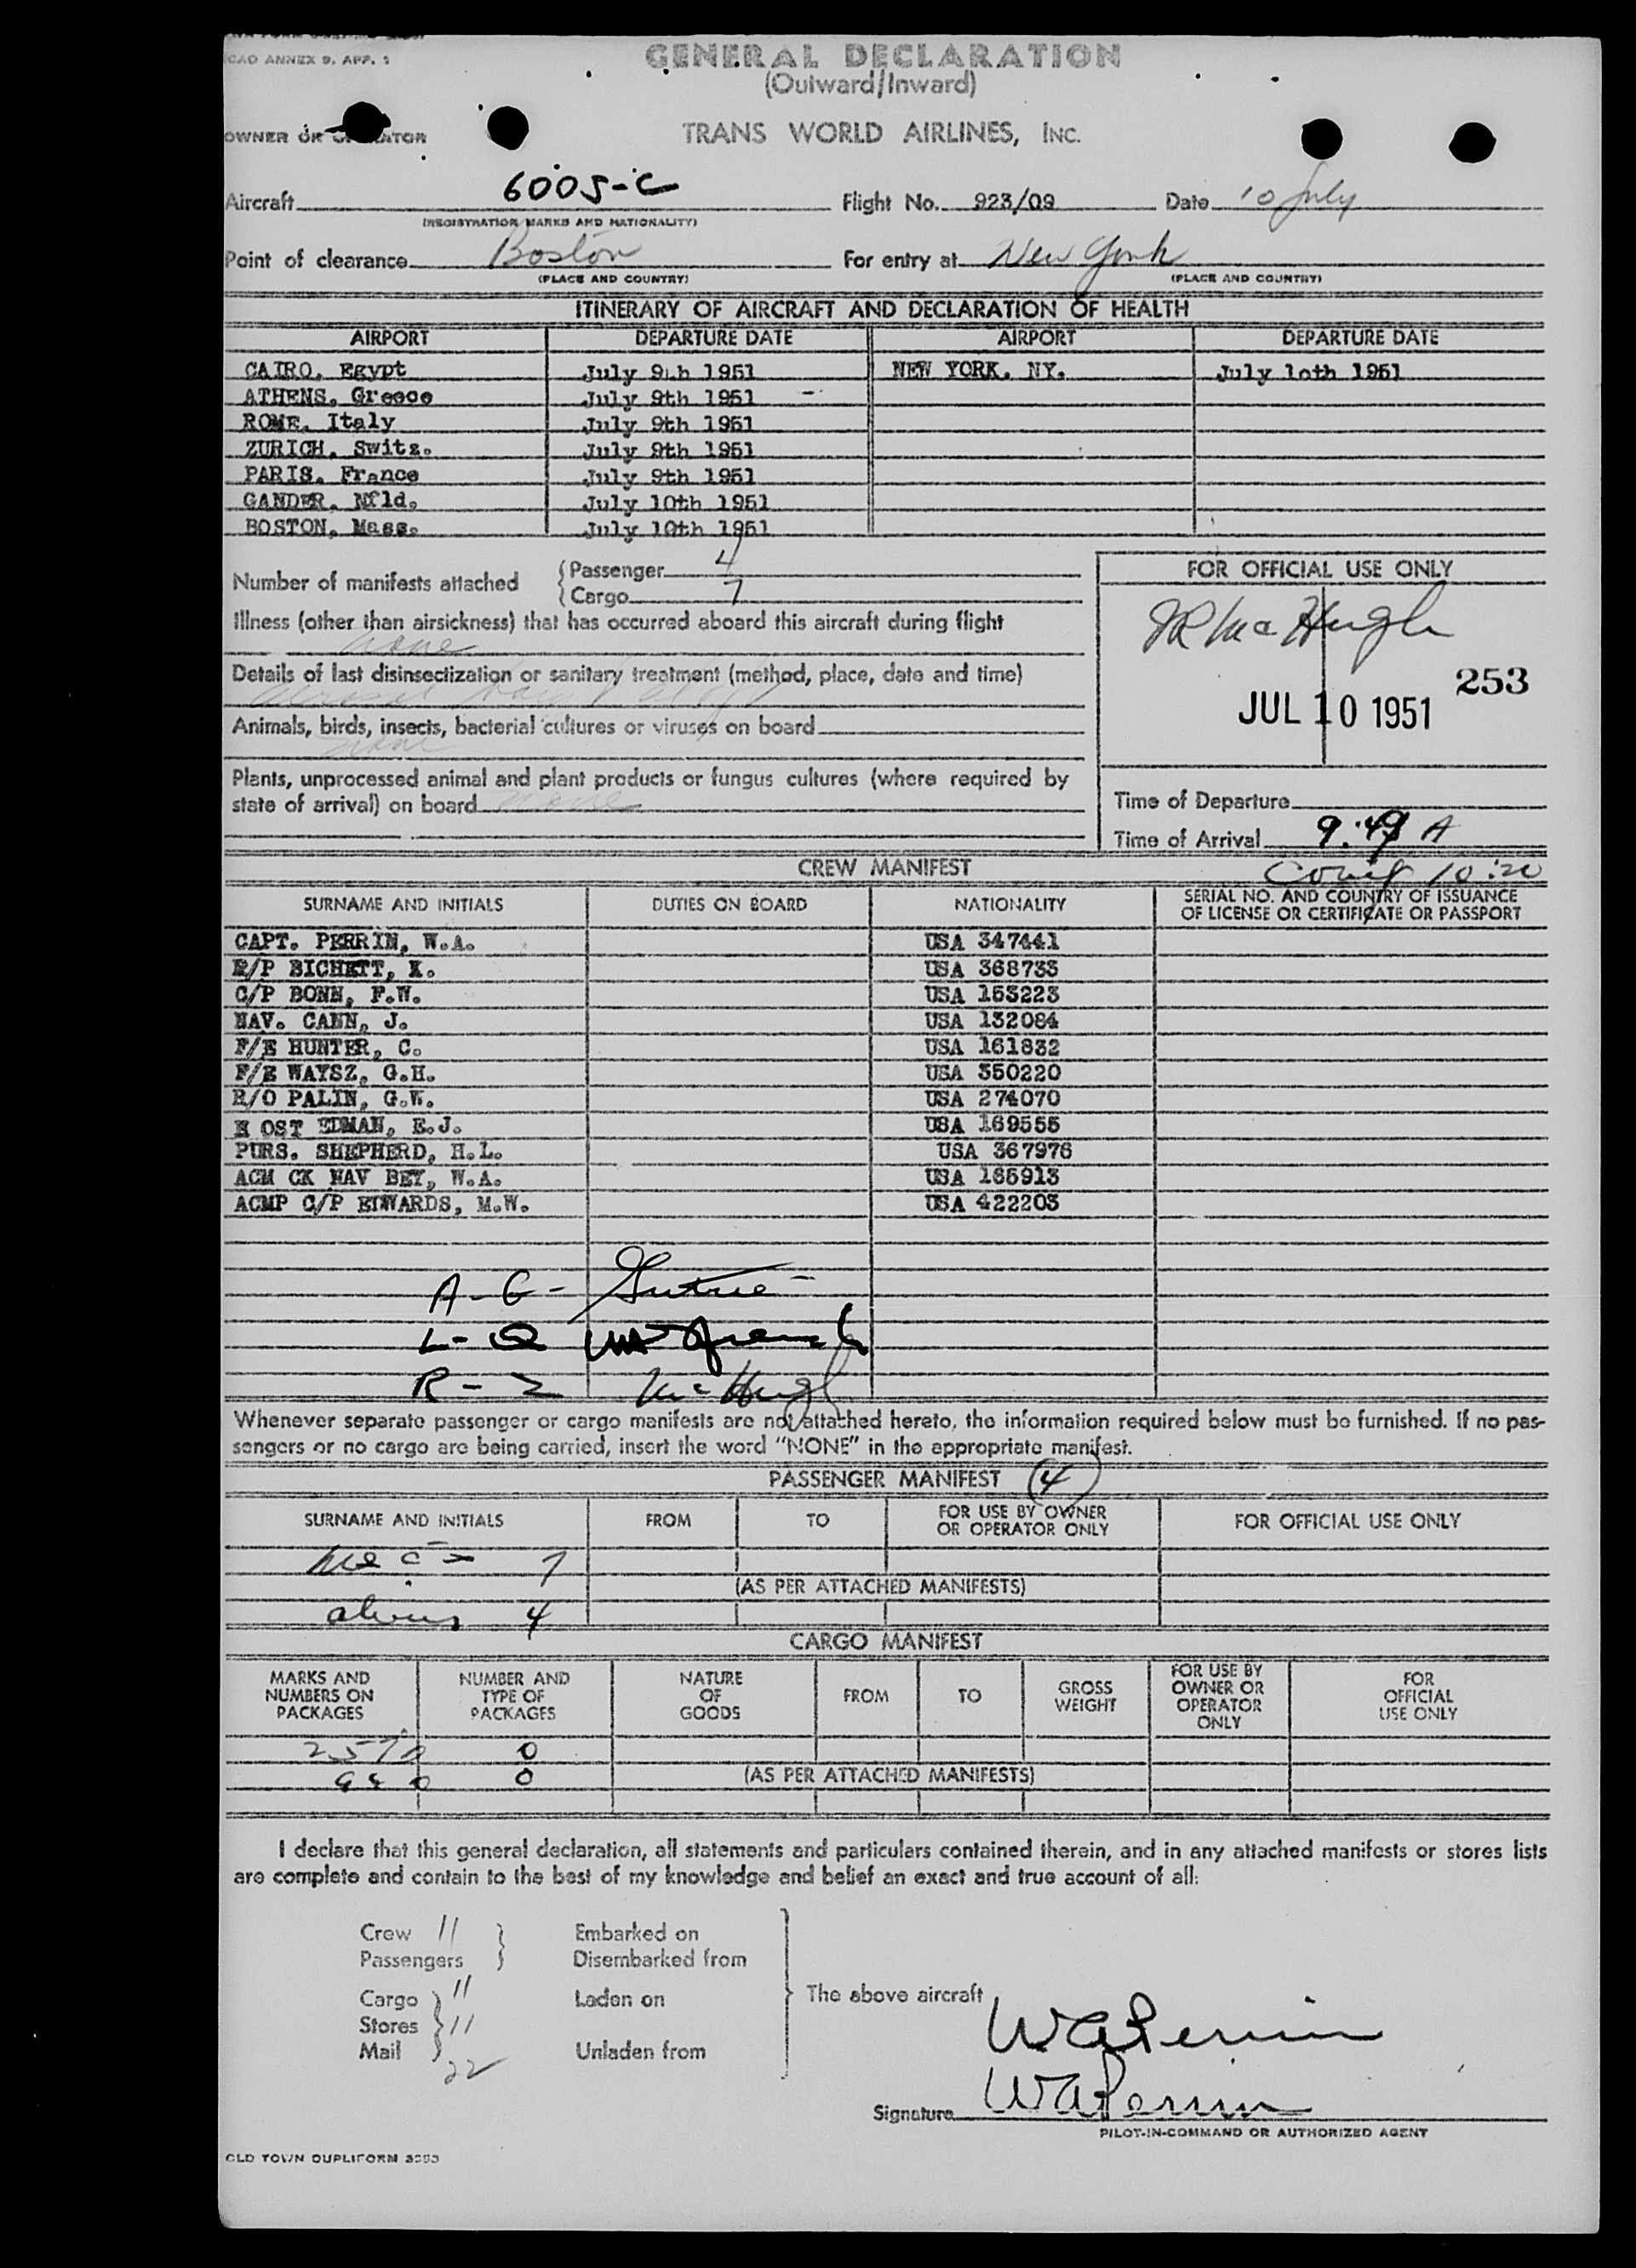 ICAO ANNEX 9, APP. 1
GENERAL DECLARATION
(Outward/Inward)
OWNER OR OPERATOR
TRANS WORLD AIRLINES, INC.
Aircraft 6005-C Flight No. 923/09 Date 10 July
(REGISTRATION MARKS AND NATIONALITY)
Point of clearance Boston For entry at New York
(PLACE AND COUNTRY) (PLACE AND COUNTRY)
ITINERARY OF AIRCRAFT AND DECLARATION OF HEALTH
AIRPORT DEPARTURE DATE AIRPORT DEPARTURE DATE
CAIRO, Egypt July 9th 1951 NEW YORK, NY. July 10th 1951
ATHENS, Greece July 9th 1951
ROME, Italy July 9th 1951
ZURICH, Switz. July 9th 1951
PARIS, France July 9th 1951
GANDER, Nfld. July 10th 1951
BOSTON, Mass. July 10th 1951
Number of manifests attached
Passenger 4
Cargo 7
Illness (other than airsickness) that has occurred aboard this aircraft during flight
none
Details of last disinsectization or sanitary treatment (method, place, date and time)
Animals, birds, insects, bacterial cultures or viruses on board
none
Plants, unprocessed animal and plant products or fungus cultures (where required by
state of arrival) on board none
FOR OFFICIAL USE ONLY
JR McHugh
253
JUL 10 1951
Time of Departure
Time of Arrival 9:49 A
10:20
CREW MANIFEST
SURNAME AND INITIALS DUTIES ON BOARD NATIONALITY SERIAL NO. AND COUNTRY OF ISSUANCE
OF LICENSE OR CERTIFICATE OR PASSPORT
CAPT. PERRIN, W.A. USA 347441
R/P BICHETT, K. USA 368733
C/P BONN, F.W. USA 153223
NAV. CANN, J. USA 132084
F/E HUNTER, C. USA 161832
F/E WAYSZ, G.H. USA 350220
R/O PALIN, G.W. USA 274070
H OST EDMAN, E.J. USA 169555
PURS. SHEPHERD, H.L. USA 367976
ACM CK NAV BEY, W.A. USA 185913
ACMP C/P EDWARDS, M.W. USA 422203
A-G-
L-Q
R-2 McHugh
Whenever separate passenger or cargo manifests are not attached hereto, the information required below must be furnished. If no pas-
sengers or no cargo are being carried, insert the word "NONE" in the appropriate manifest.
PASSENGER MANIFEST 4
SURNAME AND INITIALS FROM TO FOR USE BY OWNER
OR OPERATOR ONLY FOR OFFICIAL USE ONLY
7
(AS PER ATTACHED MANIFESTS)
aliens 4
CARGO MANIFEST
MARKS AND
NUMBERS ON
PACKAGES
NUMBER AND
TYPE OF
PACKAGES
NATURE
OF
GOODS
FROM
TO
GROSS
WEIGHT
FOR USE BY
OWNER OR
OPERATOR
ONLY
FOR
OFFICIAL
USE ONLY
0
0
(AS PER ATTACHED MANIFESTS)
I declare that this general declaration, all statements and particulars contained therein, and in any attached manifests or stores lists
are complete and contain to the best of my knowledge and belief an exact and true account of all:
Crew 11 Embarked on
Passengers Disembarked from
Cargo 11 Laden on
Stores 11
Mail Unladen from
22
The above aircraft
WAPerrin
Signature WAPerrin
PILOT-IN-COMMAND OR AUTHORIZED AGENT
OLD TOWN DUPLIFORM 3553